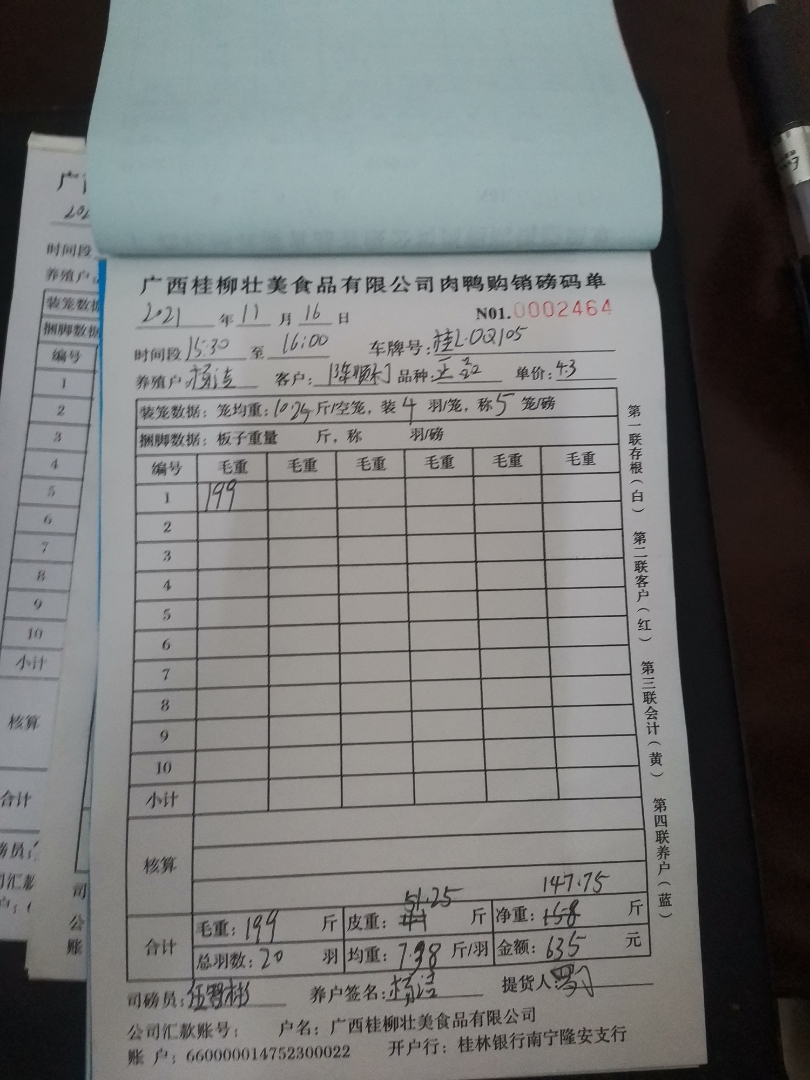 广西桂柳壮美食品有限公司肉鸭购销磅码单
2021 年 11 月 16 日 N01.0002464
时间段 15:30 至 16:00 车牌号: 桂L·0Q105
养殖户: 杨洁 客户: 品种: 单价: 4.3
装笼数据: 笼均重: 10.25 斤/空笼, 装 4 羽/笼, 称 5 笼/磅
捆脚数据: 板子重量 斤, 称 羽/磅
编号 毛重 毛重 毛重 毛重 毛重 毛重
1 199
2
3
4
5
6
7
8
9
10
小计
核算
51.25 147.75
合计 毛重: 199 斤 皮重: 斤 净重: 158 斤
总羽数: 20 羽 均重: 7.38 斤/羽 金额: 635 元
司磅员: 养户签名: 杨洁 提货人:
公司汇款账号: 户名: 广西桂柳壮美食品有限公司
账 户: 660000014752300022 开户行: 桂林银行南宁隆安支行
第一联存根(白) 第二联客户(红) 第三联会计(黄) 第四联养户(蓝)
广
202
时间段
养殖户:
装笼数据
捆脚数据
编号
1
2
3
4
5
6
7
8
9
10
小计
核算
合计
司
公
账